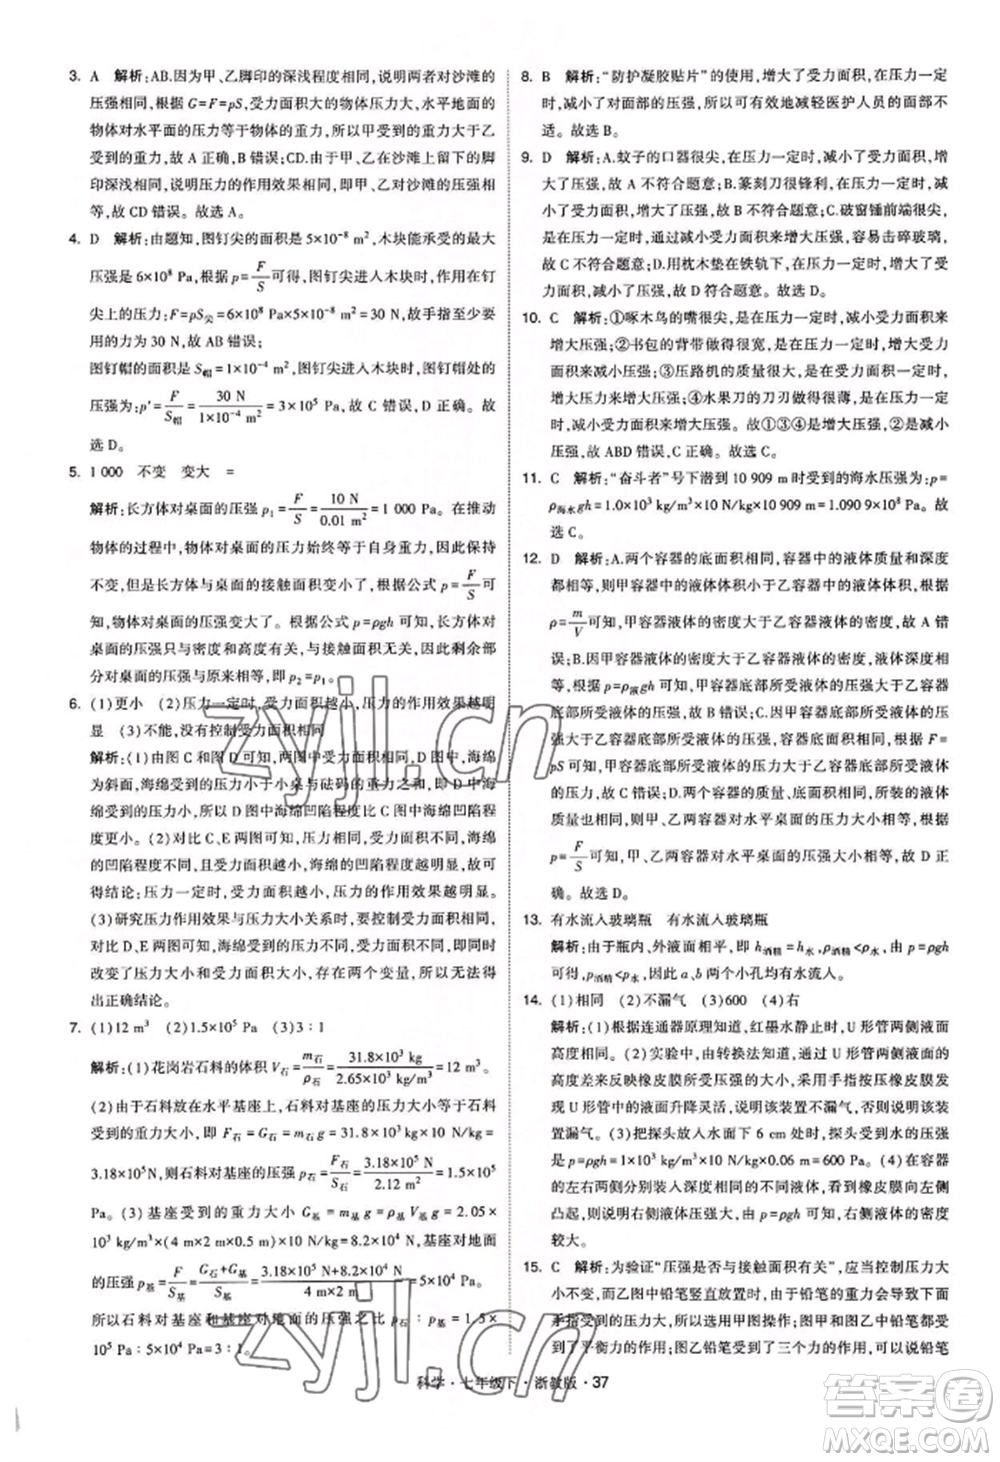 3. A 解析:AB.因为甲、乙脚印的深浅程度相同,说明两者对沙滩的
压强相同,根据 G=F=pS,受力面积大的物体压力大,水平地面的
物体对水平面的压力等于物体的重力,所以甲受到的重力大于乙
受到的重力,故 A 正确,B 错误;CD.由于甲、乙在沙滩上留下的脚
印深浅相同,说明压力的作用效果相同,即甲、乙对沙滩的压强相
等,故 CD 错误。故选 A。
4. D 解析:由题知,图钉尖的面积是 5×10⁻⁸ m²,木块能承受的最大
压强是 6×10⁸ Pa,根据 p=F/S 可得,图钉尖进入木块时,作用在钉
尖上的压力:F=pS尖=6×10⁸ Pa×5×10⁻⁸ m²=30 N,故手指至少要
用的力为 30 N,故 AB 错误;
图钉帽的面积是 S帽=1×10⁻⁴ m²,图钉尖进入木块时,图钉帽处的
压强:p'=F/S帽=30 N/(1×10⁻⁴ m²)=3×10⁵ Pa,故 C 错误,D 正确。故
选 D。
5. 1 000 不变 变大 =
解析:长方体对桌面的压强 p₁=F/S=10 N/0.01 m²=1 000 Pa。在推动
物体的过程中,物体对桌面的压力始终等于物体的重力,所以压力
不变,但是长方体与桌面的接触面积变小了,根据公式 p=F/S 可
知,物体对桌面的压强变大了。根据公式 p=ρgh 可知,长方体对桌
面的压强只与密度和高度有关,与接触面积大小无关,因此剩余部
分对桌面的压强与原来相等,即 p₂=p₁。
6. (1)更小 (2)压力一定时,受力面积越小,压力的作用效果越明
显 (3)不能,没有控制受力面积相同
解析:(1)由图 C 和图 D 可知,两图中受力面积相同,D 图中海绵
为斜面,海绵受到的压力小于小桌与砝码的重力之和,即 D 图中海
绵受到的压力小,所以 D 图中海绵凹陷程度比 C 图中海绵凹陷程
度更小。(2)对比 C、E 两图可知,压力相同,受力面积越小,海绵
的凹陷程度越明显,受力面积越大,海绵的凹陷程度越不明显,故可
得结论:压力一定时,受力面积越小,压力的作用效果越明显。
(3)研究压力作用效果与压力大小关系时,应控制受力面积相同,
改变压力大小,D、E 两图中,海绵受到的压力和受力面积都不同,
没有控制受力面积相同,所以小明通过对比 D、E 两图,不能得
出正确结论。
7. (1)12 m³ (2)1.5×10⁵ Pa (3)3∶1
解析:(1)花岗岩石料的体积 V石=m石/ρ石=31.8×10³ kg/(2.65×10³ kg/m³)=12 m³。
(2)由于石料放在水平基座上,石料对基座的压力大小等于石料受
到的重力大小,即 F石=G石=m石g=31.8×10³ kg×10 N/kg=
3.18×10⁵ N,则石料对基座的压强 p石=F石/S石=3.18×10⁵ N/2 m²≈1.5×10⁵
Pa。(3)基座受到的重力大小 G基=m基g=ρ基V基g=2.05×10³
kg/m³×4 m³×10 N/kg=8.2×10⁴ N,基座对地面
的压强 p基=F/S基=(G石+G基)/S基=(3.18×10⁵ N+8.2×10⁴ N)/(4 m×2 m)=5×10⁴ Pa,
所以石料对基座和基座对地面的压强之比 p石∶p基=1.5×
10⁵ Pa∶5×10⁴ Pa=3∶1。
8. B 解析:“防护凝胶贴片”的使用,增大了受力面积,在压力一定
时,减小了对面部的压强,可以有效地减轻医护人员的面部不
适。故选 B。
9. D 解析:A.蚊子的口器很尖,在压力一定时,减小了受力面积,增
大了压强,故 A 不符合题意;B.篆刻刀很锋利,在压力一定时,减小
了受力面积,增大了压强,故 B 不符合题意;C.破窗锤前端很尖,
在压力一定时,减小了受力面积,增大了压强,容易击碎玻璃,
故 C 不符合题意;D.用枕木垫在铁轨下,在压力一定时,增大了受
力面积,减小了压强,故 D 符合题意。故选 D。
10. C 解析:①啄木鸟的嘴很尖,是在压力一定时,减小受力面积来
增大压强;②书包的背带做得很宽,是在压力一定时,增大受
力面积来减小压强;③压路机的质量很大,是在受力面积一
定时,增大压力来增大压强;④水果刀的刀刃做得很薄,是在压力
一定时,减小受力面积来增大压强。故①③④是为了增大压
强,故 ABD 错误,C 正确。故选 C。
11. C 解析:“奋斗者”号下潜到 10 909 m 时受到的海水压强为:p=
ρ海水gh=1.0×10³ kg/m³×10 N/kg×10 909 m=1.090 9×10⁸ Pa。故
选 C。
12. D 解析:A.两个容器的底面积相同,容器中的液体质量和深度
都相等,则甲容器中的液体体积小于乙容器中的液体体积,根据
ρ=m/V 可知,甲容器液体的密度大于乙容器液体的密度,故 A 错
误;B.因为甲容器液体的密度大于乙容器液体的密度,深度相同,根
据 p=ρ液gh 可知,甲容器底部所受液体的压强大于乙容器
底部所受液体的压强,故 B 错误;C.甲容器底部所受液体的压强大
于乙容器底部所受液体的压强,容器底面积相同,根据 F=
pS 可知,甲容器底部所受液体的压力大于乙容器底部所受液体的
压力,故 C 错误;D.两个容器的质量相等,液体的质量相等,总重力
相等,则甲、乙两容器对水平桌面的压力大小相等,根据
p=F/S 可知,甲、乙两容器对水平桌面的压强大小相等,故 D 正
确。故选 D。
13. 有水流入玻璃瓶 有水流入玻璃瓶
解析:由于瓶内、外液面相平,即 h酒精=h水,ρ酒精<ρ水,由 p=ρgh
可得,p酒精<p水,因此 a、b 两个小孔均有水流入。
14. (1)相同 (2)不漏气 (3)600 (4)右
解析:(1)根据连通器原理知道,红墨水静止时,U 形管两侧液面
高度相同。(2)实验中,由转换法知道,是通过 U 形管两侧液面高度
差来反映橡皮膜所受压强的大小的。实验前,用手指按压橡皮膜,
发现 U 形管中的液面升降灵活,说明该装置不漏气。
(3)把探头放入水面下 6 cm 时,探头受到水的压
强 p=ρgh=1.0×10³ kg/m³×10 N/kg×0.06 m=600 Pa。(4)在容器
的左右两侧分别装入深度相同的不同液体,看到橡皮膜向左侧
凸起,说明右侧液体压强大,由 p=ρgh 可知,右侧液体的密度较
大。
15. C 解析:为验证“压强是否与接触面积有关”,应当控制压力大小相
等,而乙图中铅笔竖直放置时,由于铅笔的质量较小,重力可忽略,
故可利用甲图操作;甲图操作中,铅笔受
到了平衡力的作用;图乙操作中,铅笔受到了三个力的作用,所以铅笔
科学·七年级下·浙教版·37
zyjl.cn
答案圈
MXQE.COM